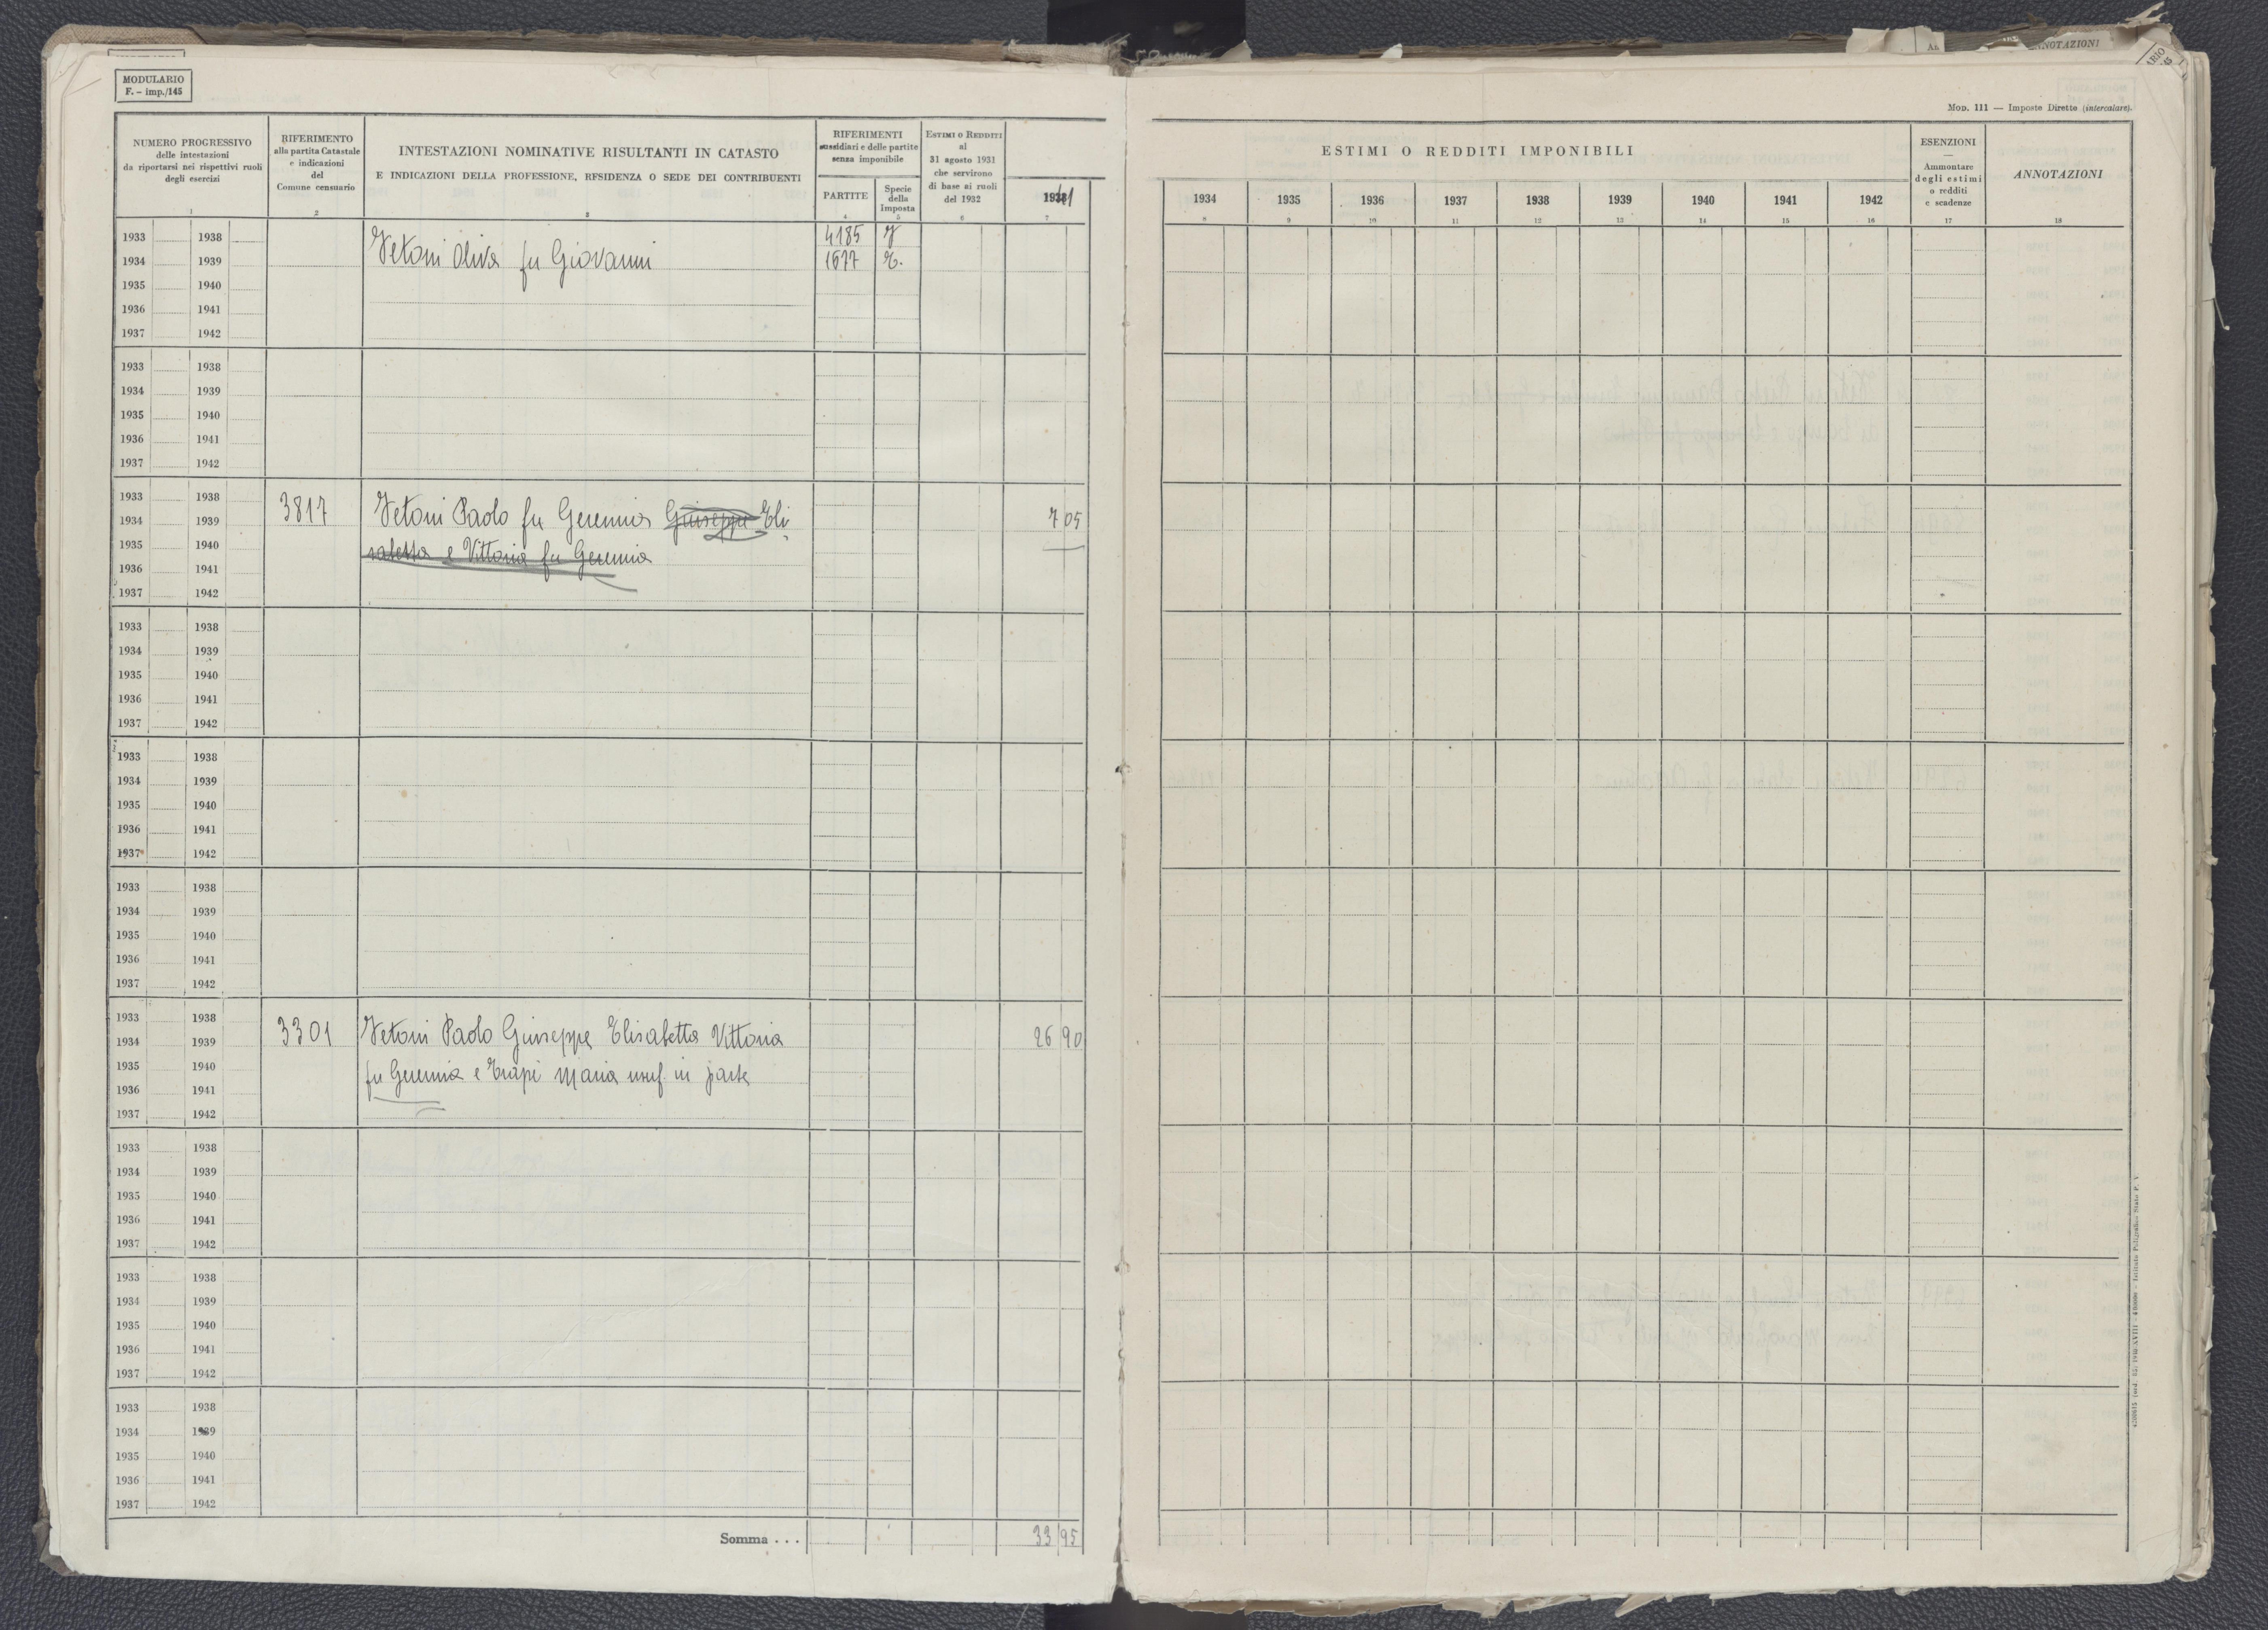 MODULARIO
F. - imp./145
NUMERO PROGRESSIVO
delle intestazioni
da riportarsi nei rispettivi ruoli
degli esercizi
1
RIFERIMENTO
alla partita Catastale
e indicazioni
del
Comune censuario
2
INTESTAZIONI NOMINATIVE RISULTANTI IN CATASTO
E INDICAZIONI DELLA PROFESSIONE, RESIDENZA O SEDE DEI CONTRIBUENTI
3
RIFERIMENTI
sussidiari e delle partite
senza imponibile
PARTITE
4
Specie
della
Imposta
5
ESTIMI O REDDITI
al
31 agosto 1931
che servirono
di base ai ruoli
del 1932
6
7
1933 1938
4185
1934 1939 Vetoni Oliva fu Giovanni 1677
1935 1940
1936 1941
1937 1942
1933 1938
1934 1939
1935 1940
1936 1941
1937 1942
1933 1938
1934 1939 3817 Vetoni Paolo fu Geremia Giuseppe Eli 7 05
1935 1940 sabetta e Vittoria fu Geremia
1936 1941
1937 1942
1933 1938
1934 1939
1935 1940
1936 1941
1937 1942
1933 1938
1934 1939
1935 1940
1936 1941
1937 1942
1933 1938
1934 1939
1935 1940
1936 1941
1937 1942
1933 1938
1934 1939 3301 Vetoni Paolo Giuseppe Elisabetta Vittoria 26 90
1935 1940 fu Geremia e Trapè Maria usuf. in parte
1936 1941
1937 1942
1933 1938
1934 1939
1935 1940
1936 1941
1937 1942
1933 1938
1934 1939
1935 1940
1936 1941
1937 1942
1933 1938
1934 1939
1935 1940
1936 1941
1937 1942
Somma . . . 33 95
ANNOTAZIONI
MOD. 111 — Imposte Dirette (intercalare).
ESTIMI O REDDITI IMPONIBILI
1934 1935 1936 1937 1938 1939 1940 1941 1942
8 9 10 11 12 13 14 15 16
ESENZIONI
Ammontare
degli estimi
o redditi
e scadenze
17
ANNOTAZIONI
18